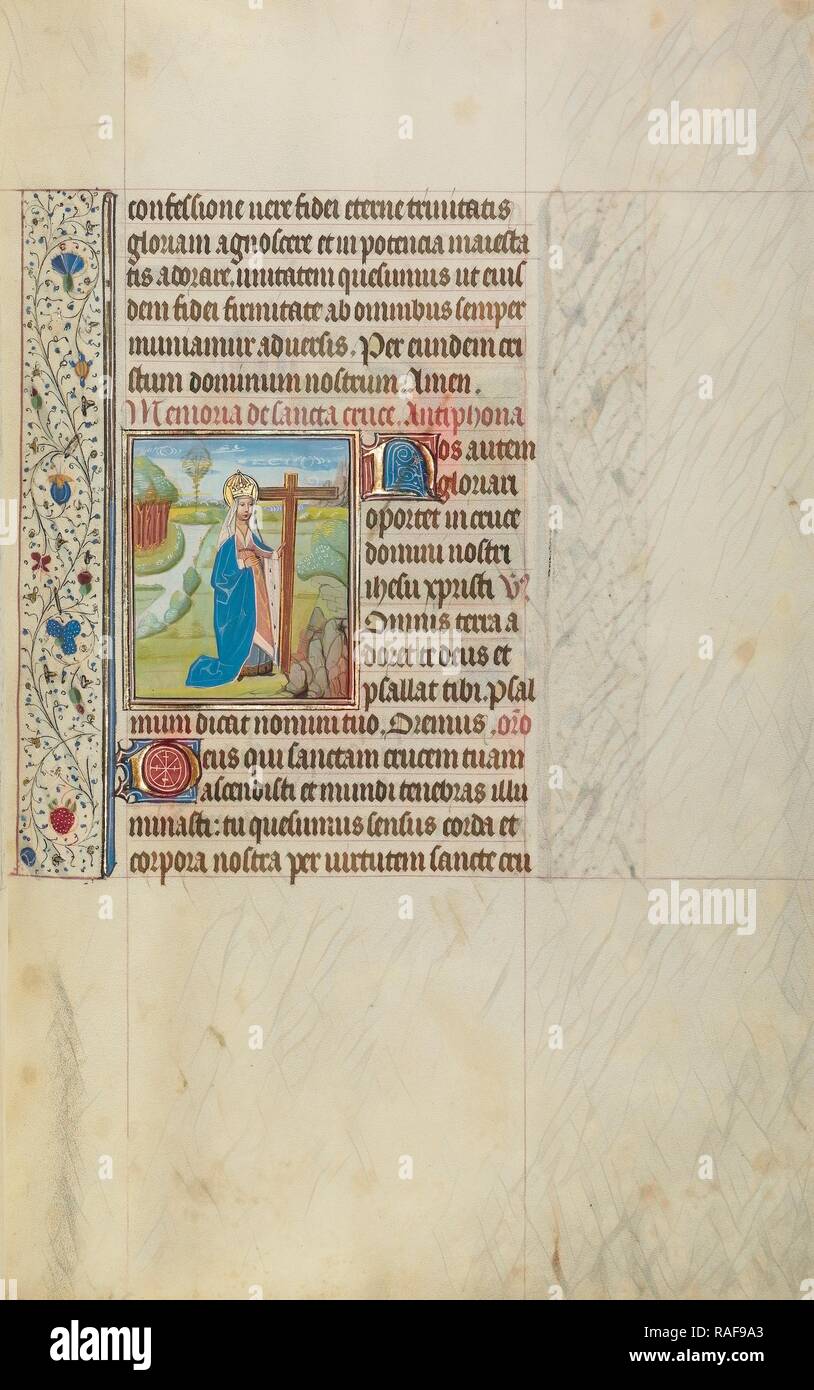 confessione uere fidei eterne trinitatis
gloriam agnoscere et in potencia maiesta
tis adorare. unitatem quesumus ut eius
dem fidei firmitate ab omnibus semper
muniamur aduersis. Per eundem cri
stum dominum nostrum. Amen.
Memoria de sancta cruce. Antiphona
Nos autem
gloriari
oportet in cruce
domini nostri
ihesu xpristi V
Omnis terra a
doret te deus et
psallat tibi. Psal
mum dicat nomini tuo. Oremus. oro
Deus qui sanctam crucem tuam
ascendisti et mundi tenebras illu
minasti: tu quesumus sensus corda et
corpora nostra per uirtutem sancte cru
alamy
alamy
alamy
alamy
alamy
Image ID: RAF9A3
www.alamy.com